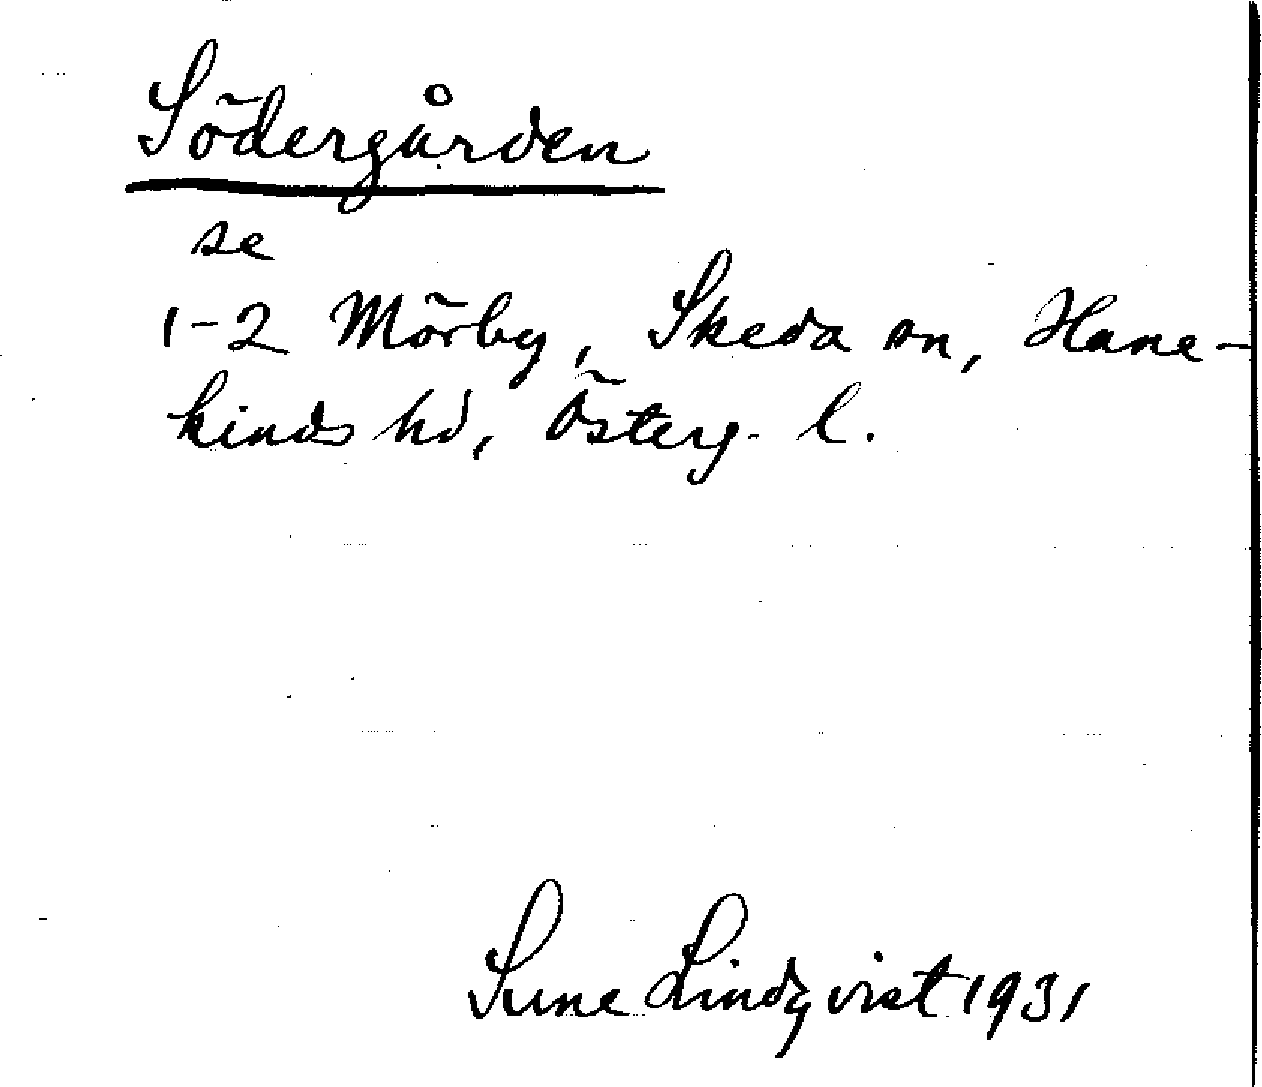 Södergården
se
1-2 Mörby, Skeda sn, Hane-
kinds hd, Österg. l.
Sune Lindqvist 1931